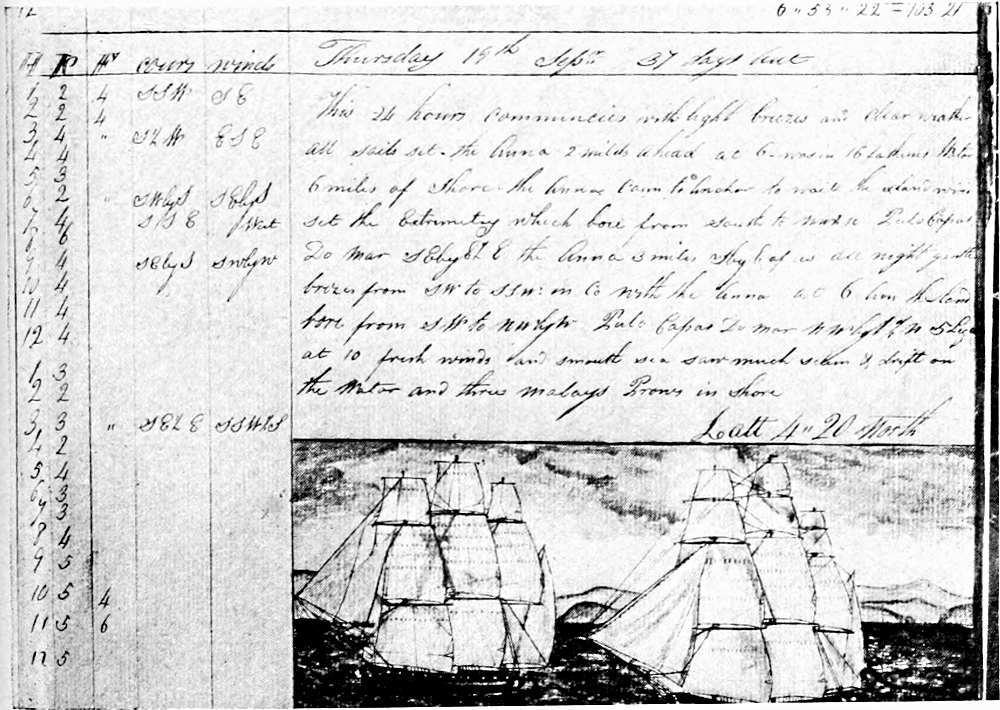 12
6 " 53 " 22 = 103 21
H K HK cours winds Thursday 19th Sepr 37 days out
1 2 4 SSW SE
2 2 4
3 4 " ESE
4 4
5 3
6 2 " SWbyS SEbyS
7 4 West
8 6
9 4 SEbyS SWbyW
10 4
11 4
12 4
1 3
2 2
3 3 "
4 2
5 4
6 3
7 3
8 4
9 5
10 5 4
11 5 6
12 5
This 24 hours commencies with light brezes and clear weather
all sails set the Anna 2 miles ahead at 6 was in 16 fathems Water
6 miles of Shore the Anna Caim to anchor to wait the land wind
set the Extremety which bore from South to Pulo Capas
Do Mar the Anna 3 miles of us all night gentle
brezes from SW to SSW in Co with the Anna at 6 the land
bore from SW to NWbyW Pulo Capas Do Mar
at 10 fresh winds and smouth sea saw much scum & drift on
the Water and three malays Prows in shore
Latt 4 " 20 North